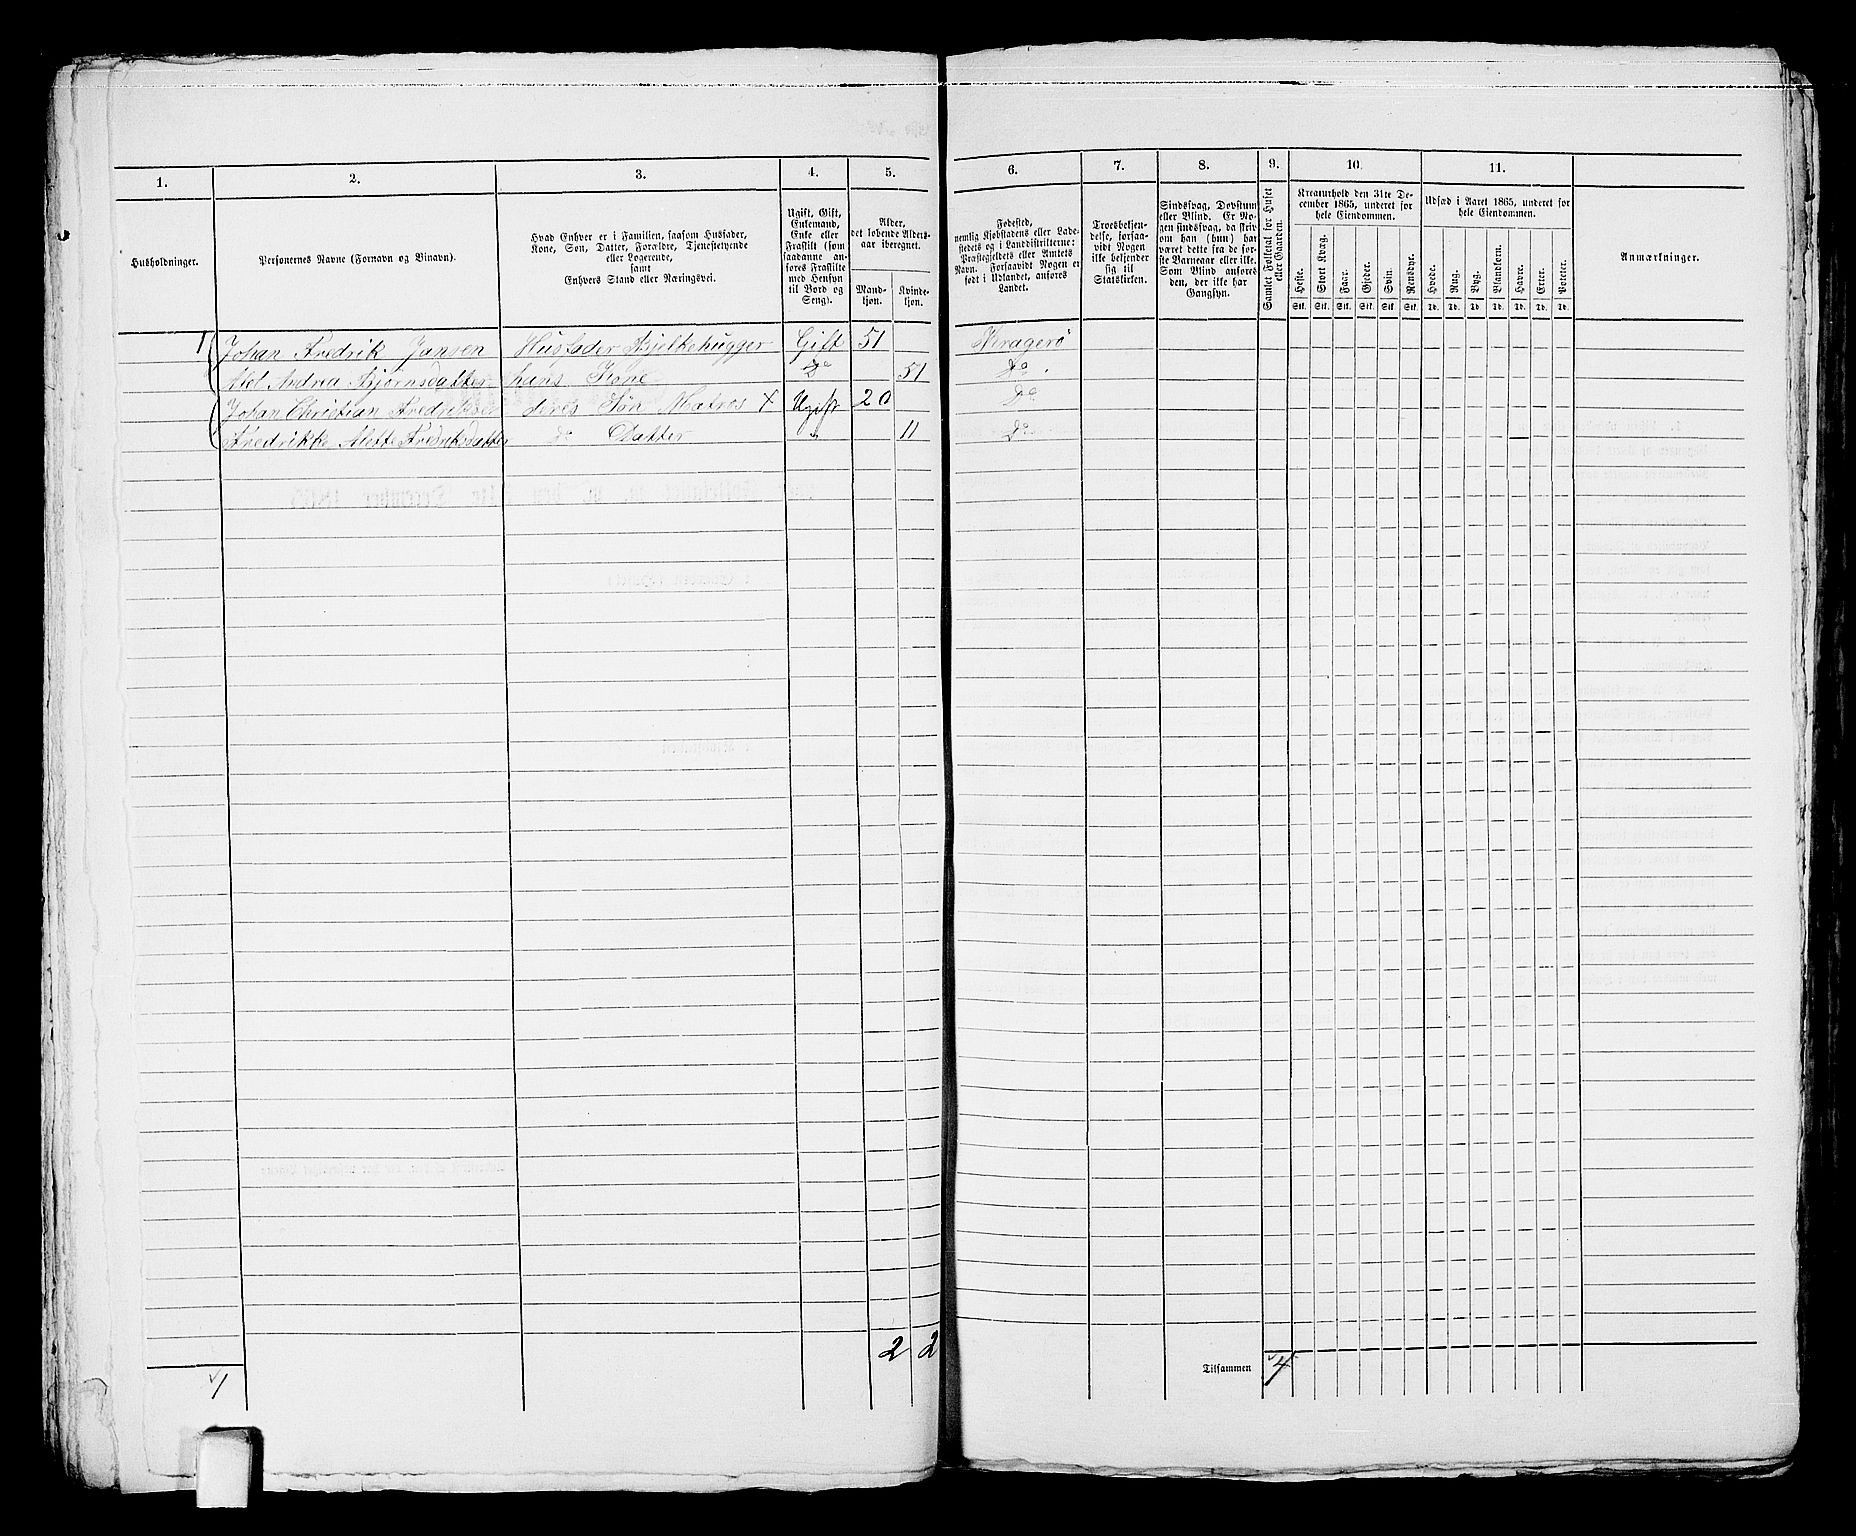 1.
2.
3.
4.
5.
6.
7.
8.
9.
10.
11.
Husholdninger.
Personernes Navne (Fornavn og Binavn).
Hvad Enhver er i Familien, saasom Husfader,
Kone, Søn, Datter, Forældre, Tjenestetyende
eller Logerende,
samt
Enhvers Stand eller Næringsvei.
Ugift, Gift,
Enkemand,
Enke eller
Fraskilt (som
saadanne an-
føres Fraskilte
med Hensyn
til Bord og
Seng).
Alder,
det løbende Alders-
aar iberegnet.
Mand-
kjøn.
Kvinde-
kjøn.
Fødested,
nemlig Kjøbstadens eller Lade-
stedets og i Landdistrikterne:
Præstegjeldets eller Amtets
Navn. Forsaavidt Nogen er
født i Udlandet, anføres
Landet.
Troesbekjen-
delse, forsaa-
vidt Nogen
ikke bekjender
sig til
Statskirken.
Sindssvag, Døvstum
eller Blind. Er No-
gen sindssvag, da skriv
om han (hun) har
været dette fra de før-
ste Barneaar eller ikke.
Som Blind anføres
den, der ikke har
Gangsyn.
Samlet Folketal for Huset
eller Gaarden.
Kreaturhold den 31te De-
cember 1865, underet for
hele Eiendommen.
Heste.
Stort Kvæg.
Faar.
Gjeder.
Svin.
Rensdyr.
Stk. Stk. Stk. Stk. Stk. Stk.
Udsæd i Aaret 1865, underet for
hele Eiendommen.
Hvede.
Rug.
Byg.
Blandkorn.
Havre.
Erter.
Poteter.
Td. Td. Td. Td. Td. Td. Td.
Anmærkninger.
1 Johan Fredrik Jansen Husfader Bjelkehugger Gift 51 Kragerö
Alel Andrea Bjørnsdatter hans Kone Do 51 Do
Johan Christian Fredriksen deres Søn Matros X Ugift 20 Do
Fredrikke Alette Fredriksdatter do Datter " 11 Do
2 2
Tilsammen 4
1